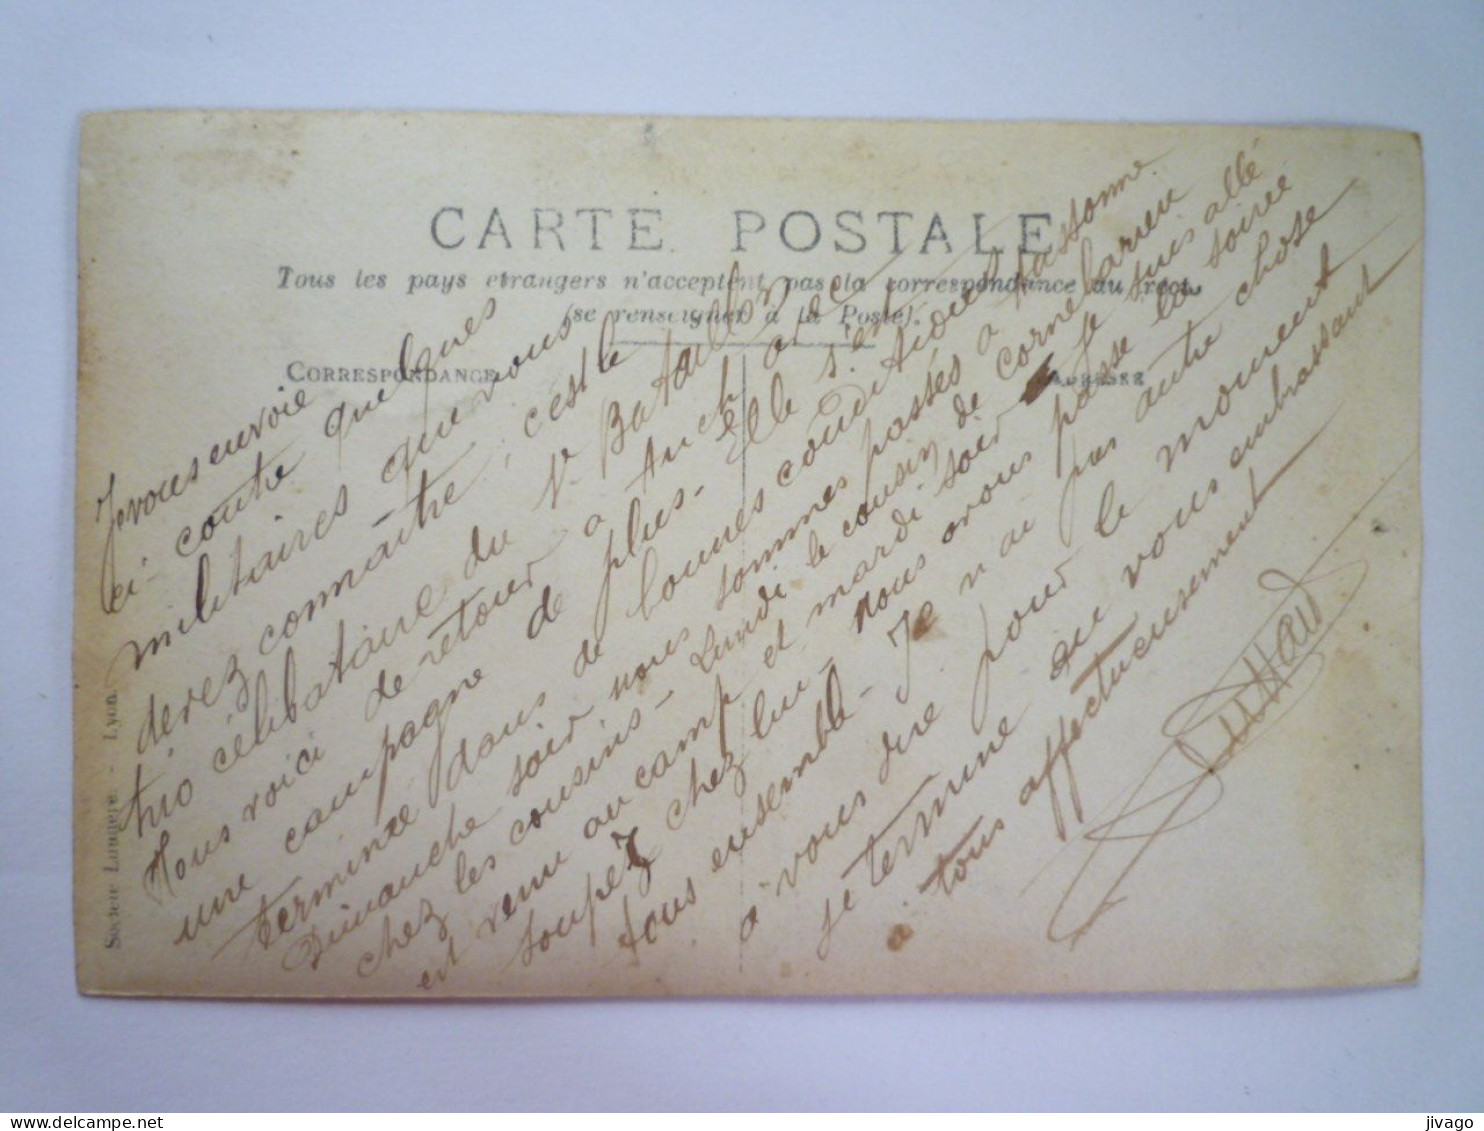 CARTE POSTALE
Tous les pays etrangers n'acceptent pas la correspondance au recto
(se renseigner à la Poste).
CORRESPONDANCE
ADRESSE
Je vous envoie
ci-contre quelques
militaires que vous
derez connaitre, c'est le
trio célibataire du V. Bataillon
Nous voici de retour à Auch avec
une campagne de plus - Elle s'est
terminée dans de bonnes conditions
Dimanche soir nous sommes passés à Massonne.
chez les cousins - Lundi le cousin de Cornebarieu
est venu au camp et mardi soir je suis allé
soupez chez lui, nous avons passé la soirée
tous ensemble - Je n'ai pas autre chose
à vous dire pour le moment
je termine en vous embrassant
tous affectueusement
Société Lumière. - Lyon
jivago
delcampe.net